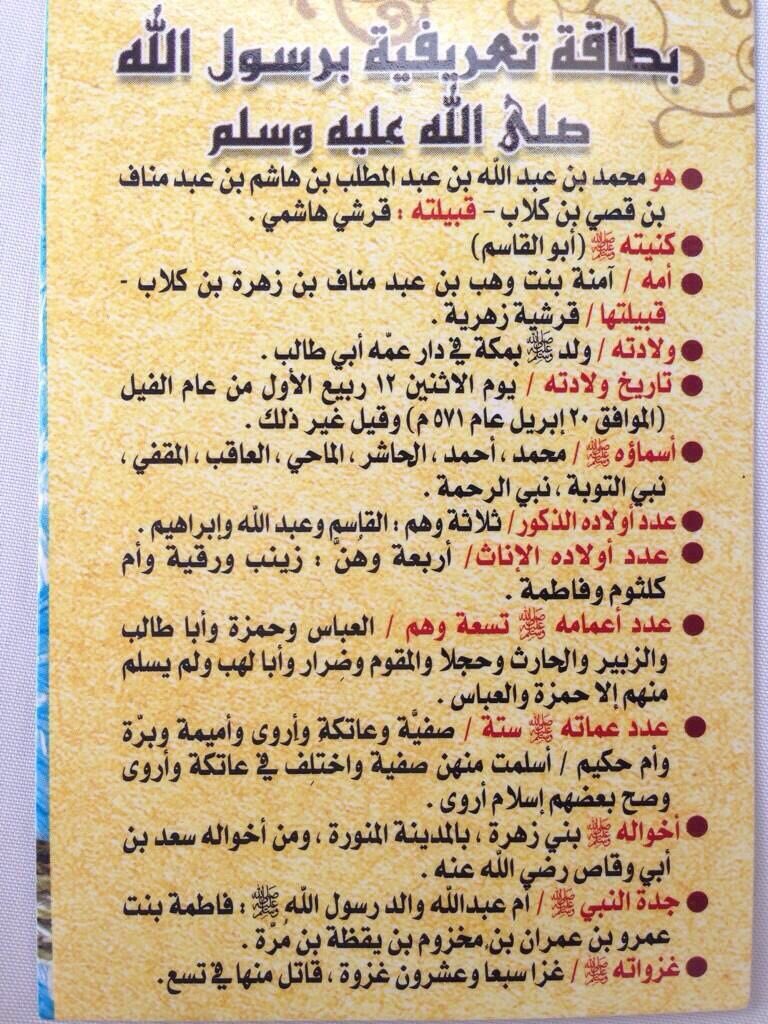 بطاقة تعريفية برسول الله
صلى الله عليه وسلم
● هو محمد بن عبد الله بن عبد المطلب بن هاشم بن عبد مناف
بن قصي بن كلاب – قبيلته : قرشي هاشمي .
● كنيته ﷺ (أبو القاسم)
● أمه / آمنة بنت وهب بن عبد مناف بن زهرة بن كلاب -
قبيلتها / قرشية زهرية .
● ولادته / ولد ﷺ بمكة في دار عمّه أبي طالب .
● تاريخ ولادته / يوم الاثنين ١٢ ربيع الأول من عام الفيل
(الموافق ٢٠ إبريل عام ٥٧١ م) وقيل غير ذلك .
● أسماؤه ﷺ / محمد ، أحمد ، الحاشر ، الماحي ، العاقب ، المقفي ،
نبي التوبة ، نبي الرحمة .
● عدد أولاده الذكور/ ثلاثة وهم : القاسم وعبد الله وإبراهيم .
● عدد أولاده الإناث/ أربعة وهُنَّ : زينب ورقية وأم
كلثوم وفاطمة .
● عدد أعمامه ﷺ تسعة وهم / العباس وحمزة وأبا طالب
والزبير والحارث وحجلا والمقوم وضِرار وأبا لهب ولم يسلم
منهم إلا حمزة والعباس .
● عدد عماته ﷺ ستة / صفيَّة وعاتكة وأروى وأميمة وبرّة
وأم حكيم / أسلمت منهن صفية واختلِف في عاتكة وأروى
وصح بعضهم إسلام أروى .
● أخواله ﷺ بني زهرة ، بالمدينة المنورة ، ومن أخواله سعد بن
أبي وقاص رضي الله عنه .
● جدة النبي ﷺ / أم عبدالله والد رسول الله ﷺ : فاطمة بنت
عمرو بن عمران بن مخزوم بن يقظة بن مُرَّة .
● غزواته ﷺ / غزا سبعا وعشرون غزوة ، قاتل منها في تسع.